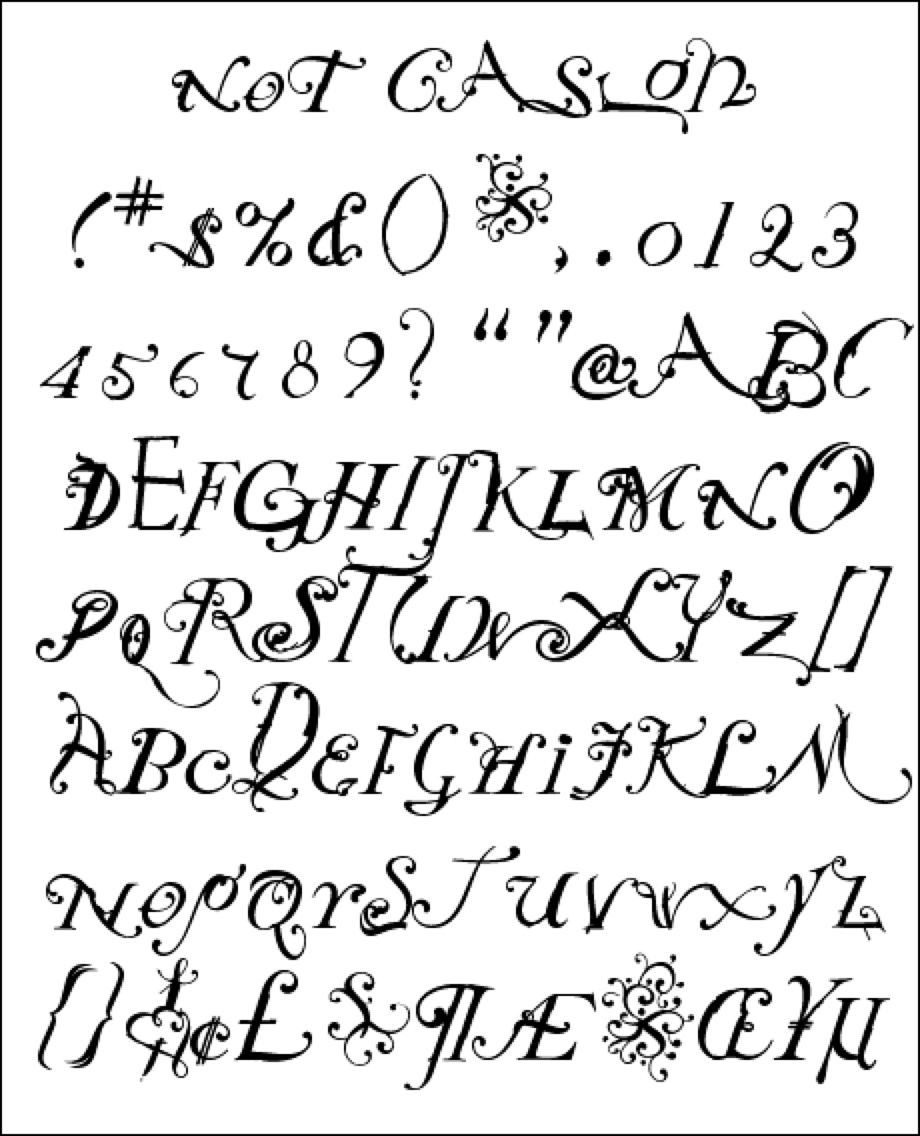 NoT CASLon
! # $ % & ( ) * , . 0 1 2 3
4 5 6 7 8 9 ? “ ” @ A B C
D E F G H I J K L M N O
P Q R S T U W X Y Z [ ]
A B c D E F G H i J K L M
N O P Q R S T U V W X Y Z
{ } ¢ £ § ¶ Æ Œ ¥ µ